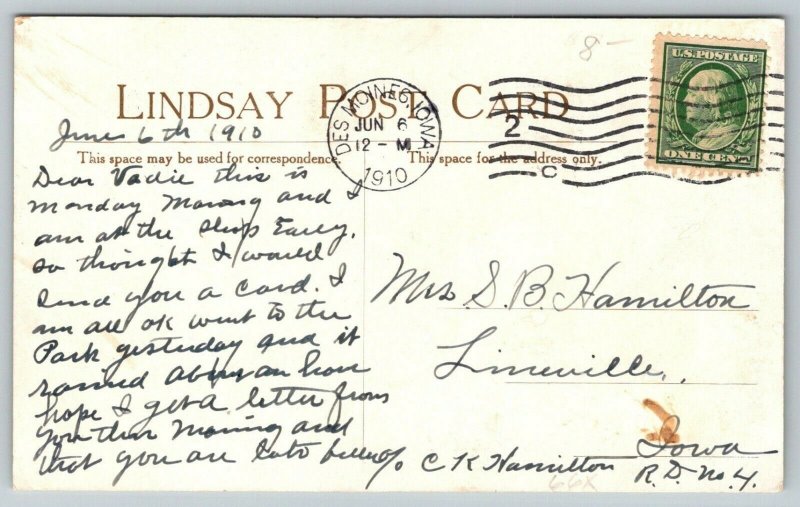 8-
U.S. POSTAGE
LINDSAY POST CARD
DES MOINES, IOWA.
JUN 6
12-M
1910
2
C
ONE CENT
June 6th 1910
This space may be used for correspondence.
This space for the address only.
Dear Vadie this is
monday Morning and I
am at the shop Early,
so thought I would
send you a card. I
am all ok went to the
Park yesterday and it
rained about an hour
hope I get a letter from
you this Morning and
that you are lots better
Mrs S. B. Hamilton
Lineville,
Iowa
c/o C K Hamilton R.D. No. 4.